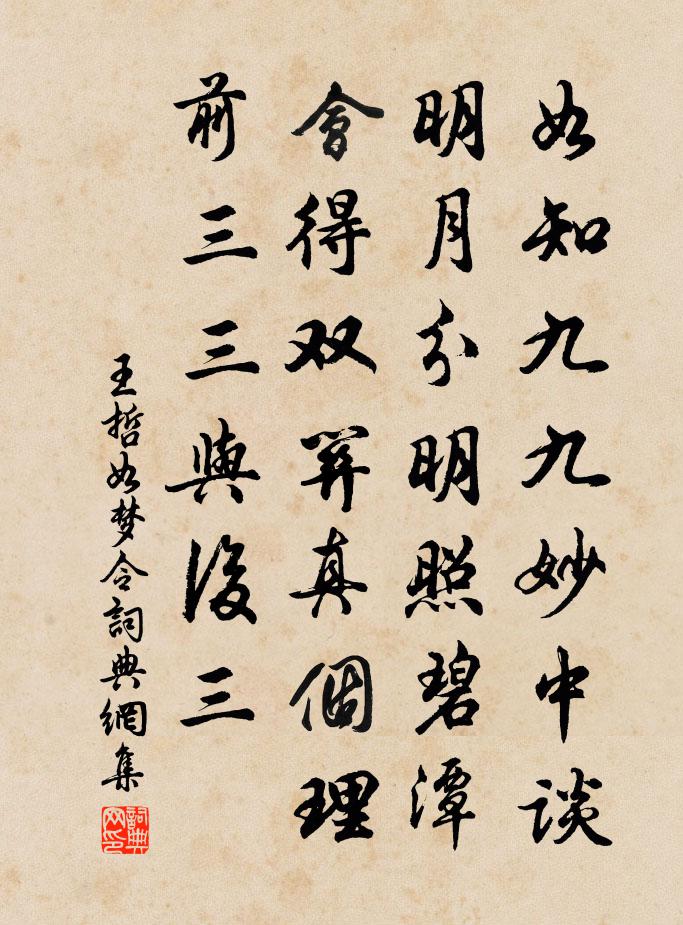 如知九九妙中談
明月分明照碧潭
會得双關真個理
前三三與後三
王哲如梦令詞典網集
詞典网印